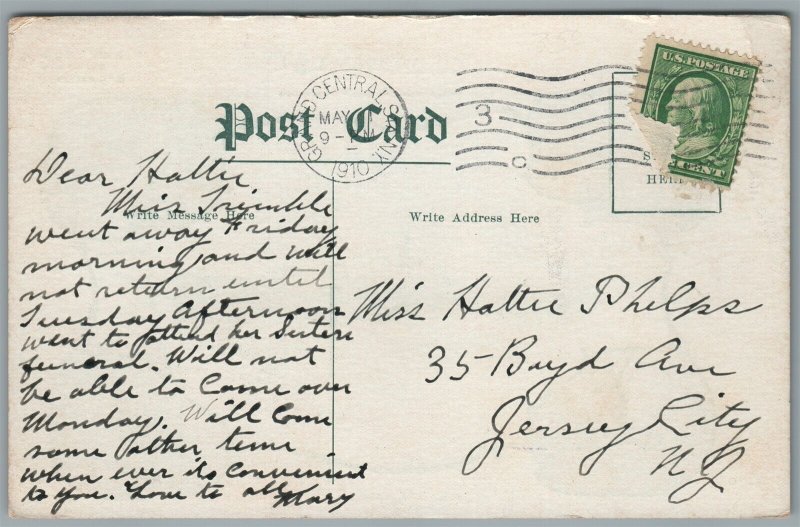 Post Card
GRAND CENTRAL STA. N.Y.
MAY
9-PM
1910
3
C
U.S. POSTAGE
CENT
HERE
Write Message Here
Write Address Here
Dear Hattie
Miss Trimble
went away Friday
morning and will
not return until
Tuesday Afternoon
went to attend her Sisters
funeral. Will not
be able to Come over
Monday. Will Come
some other time
when ever its Convenient
to you. Love to all Mary
Miss Hattie Phelps
35 Boyd Ave
Jersey City
N J